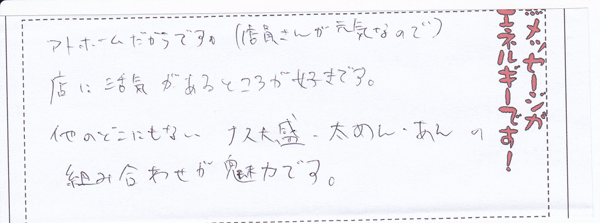 アトホームだからですか(店員さんが元気なので)
店に活気があるところが好きです。
他のどこにもない ナス大盛・太めん・あんの
組み合わせが魅力です。
※メッセージが
エネルギーです!